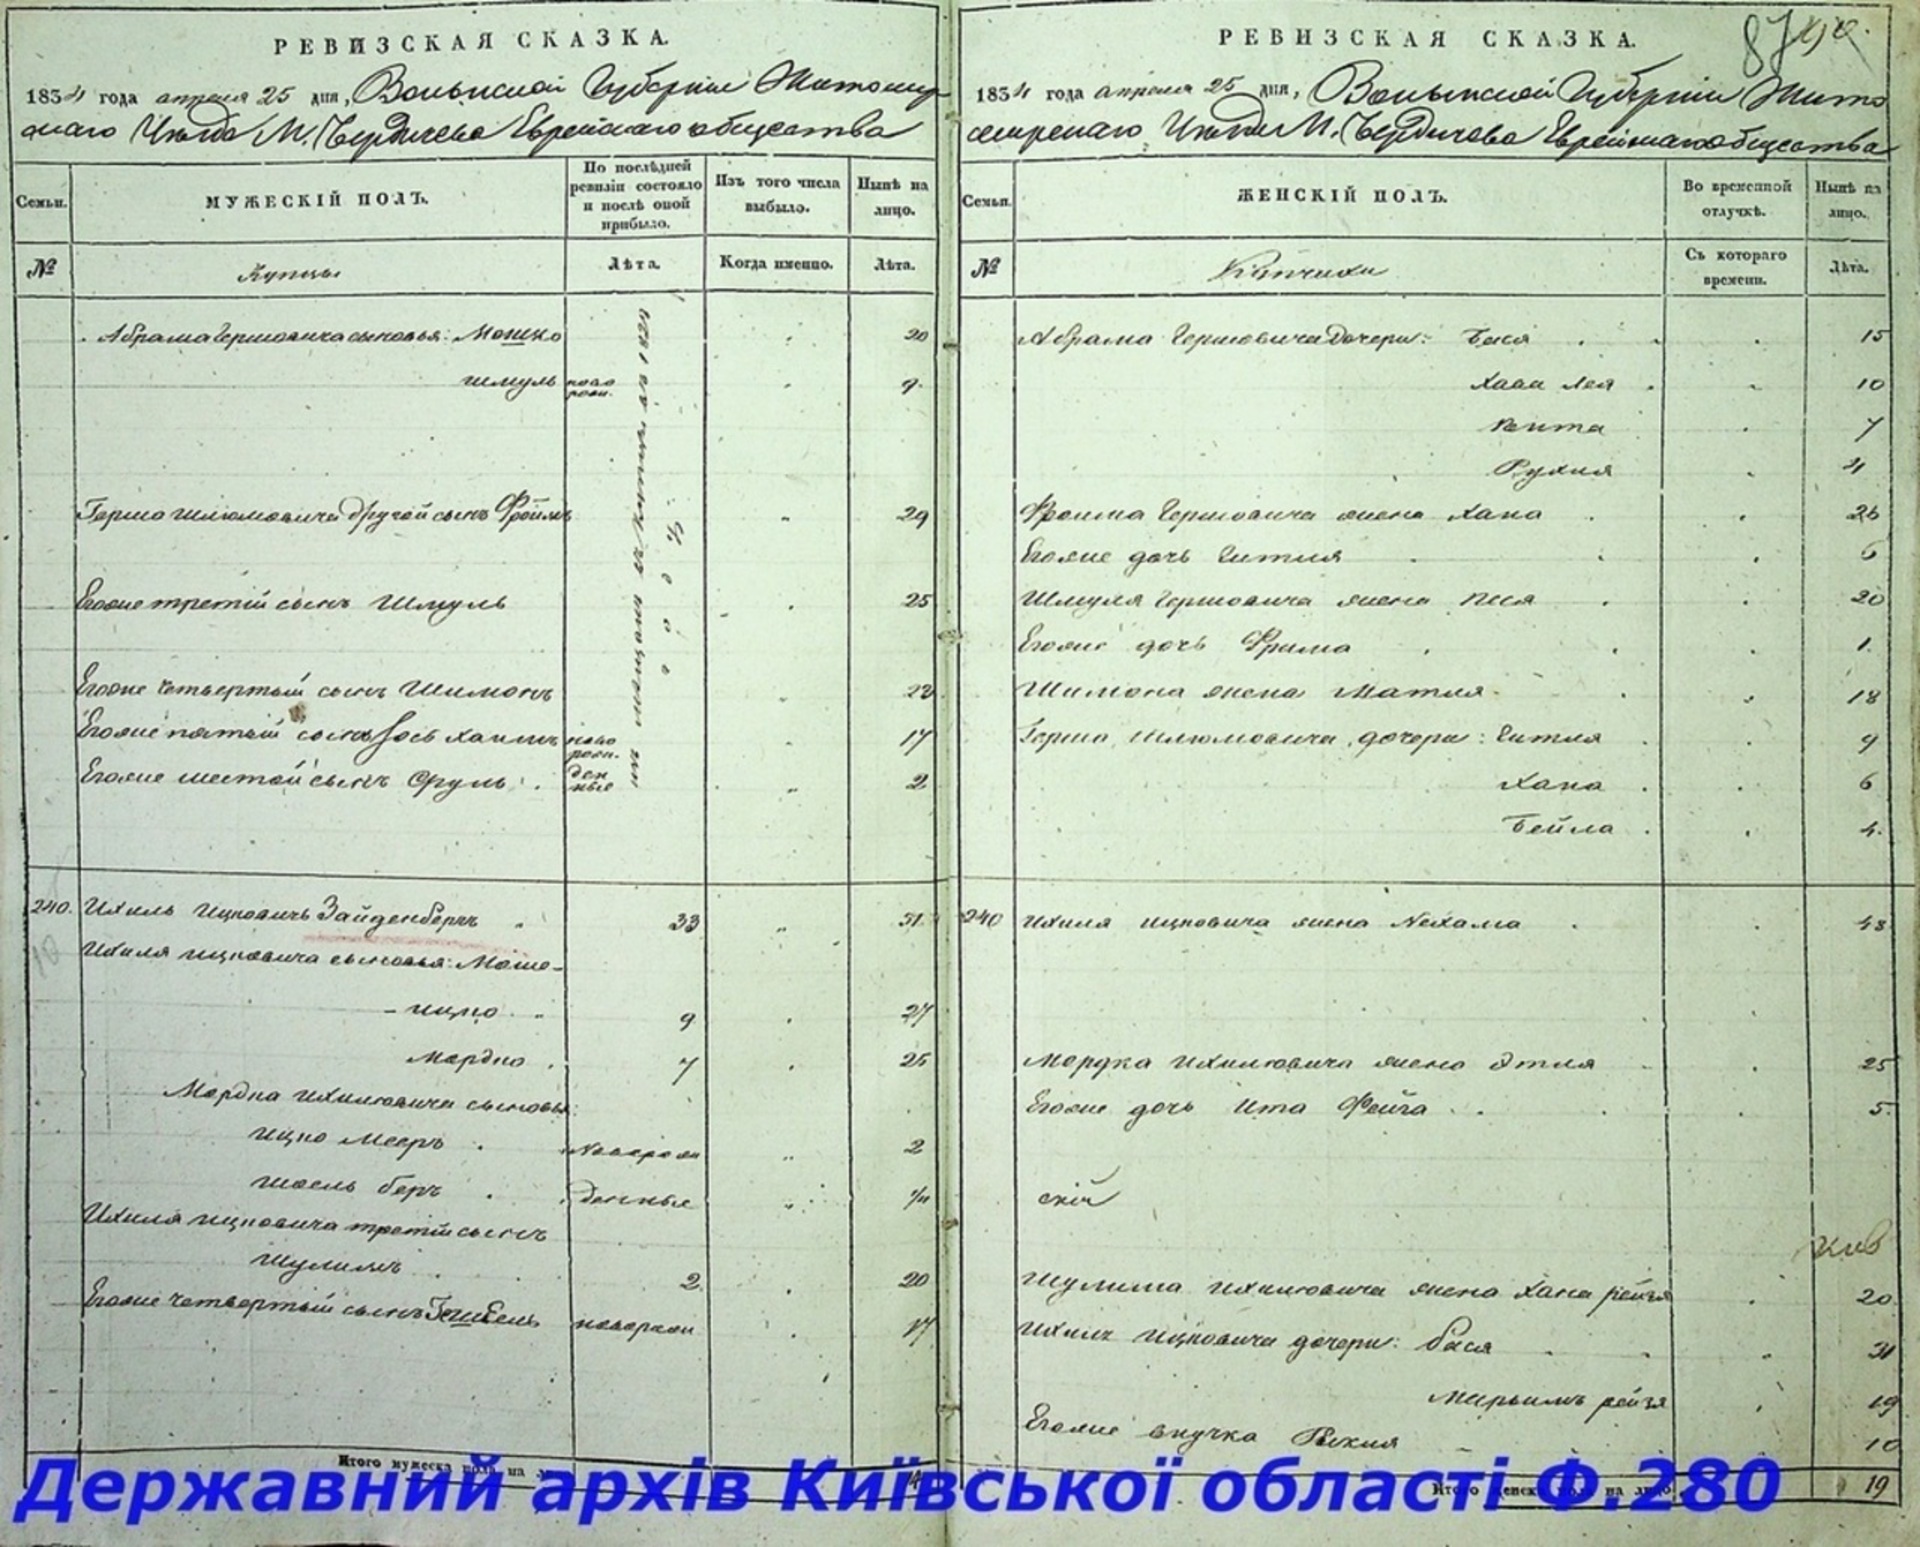 РЕВИЗСКАЯ СКАЗКА.
1834 года апреля 25 дня, Волынской Губернии Житомир
скаго Уезда М. Бердичева Еврейскаго общества
Семьи.
МУЖЕСКІЙ ПОЛЪ.
По послѣдней ревизіи состояло и послѣ оной прибыло.
Изъ того числа выбыло.
Нынѣ на лицо.
№
Купцы
Лѣта.
Когда именно.
Лѣта.
Абрама Гершовича сыновья: Мошко 20
Шмуль ново рож. 9
Гершо Шлюмовича другой сынъ Фроимъ 29
Егоже третій сынъ Шмуль 25
Егоже четвертый сынъ Шимонъ 22
Егоже пятый сынъ Іось Хаимъ ново рож. 17
Егоже шестой сынъ Сруль ден ные 2
240. Ихиль Ицковичъ Зайденберъ 33
Ихиля Ицковича сыновья: Моше-
- Ицко 9 27
Мордко 7 25
Мордка Ихилювича сыновья:
Ицко Мееръ Поворож 2
Шоель беръ денные
Ихиля Ицковича третій сынъ
Шулимъ 2 20
Егоже четвертый сынъ новорож 17
Итого мужеска пола на
РЕВИЗСКАЯ СКАЗКА.
87
1834 года апреля 25 дня, Волынской Губерніи Жито
мирскаго Уезда М. Бердичева Еврейскаго общества
Семьи.
ЖЕНСКІЙ ПОЛЪ.
Во временной отлучкѣ.
Нынѣ на лицо.
№
Купчихи
Съ котораго времени.
Лѣта.
Абрама Гершовича дочери: Бася 15
Хава Лея 10
Пента 7
Рухля 4
Фроима Гершовича жена Хана 26
Егоже дочь Гитля 6
Шмуля Гершовича жена Песя 20
Егоже дочь Фрима 1.
Шимона жена Матля 18
Гершо Шлюмовича дочери: Гитля 9
Хана 6
Бейла 4.
240 Ихиля Ицковича жена Нехама 48
Мордка Ихилювича жена Этля 25
Егоже дочь Ита Фейга 5
скій
Шулима Ихилювича жена Хана рейзя 20
Ихиля Ицковича дочери: Бася 31
Марьимъ рейзя 19
Егоже внучка Рикля 10
Итого женска пола на лицо 19
Державний архів Київської області Ф.280